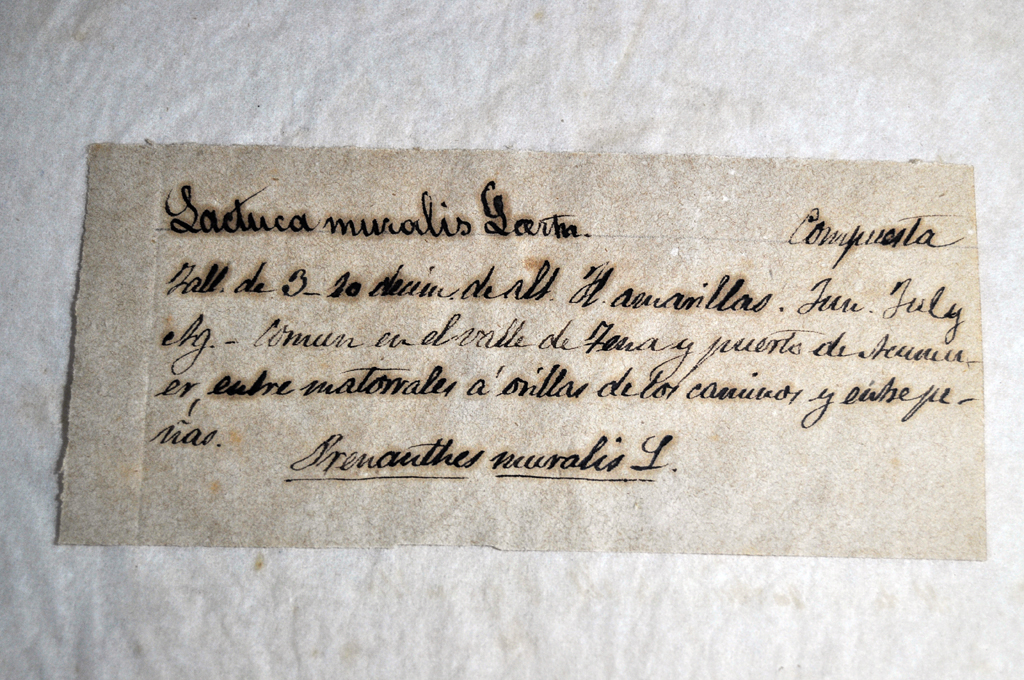 Lactuca muralis Gærtn. Compuesta
Tall. de 3-10 decím. de alt. Fl. amarillas. Jun. Jul y
Ag. - Comun en el valle de Tena y puerto de Acumu-
er, entre matorrales á orillas de los caminos y entre pe-
ñas.
Prenanthes muralis L.